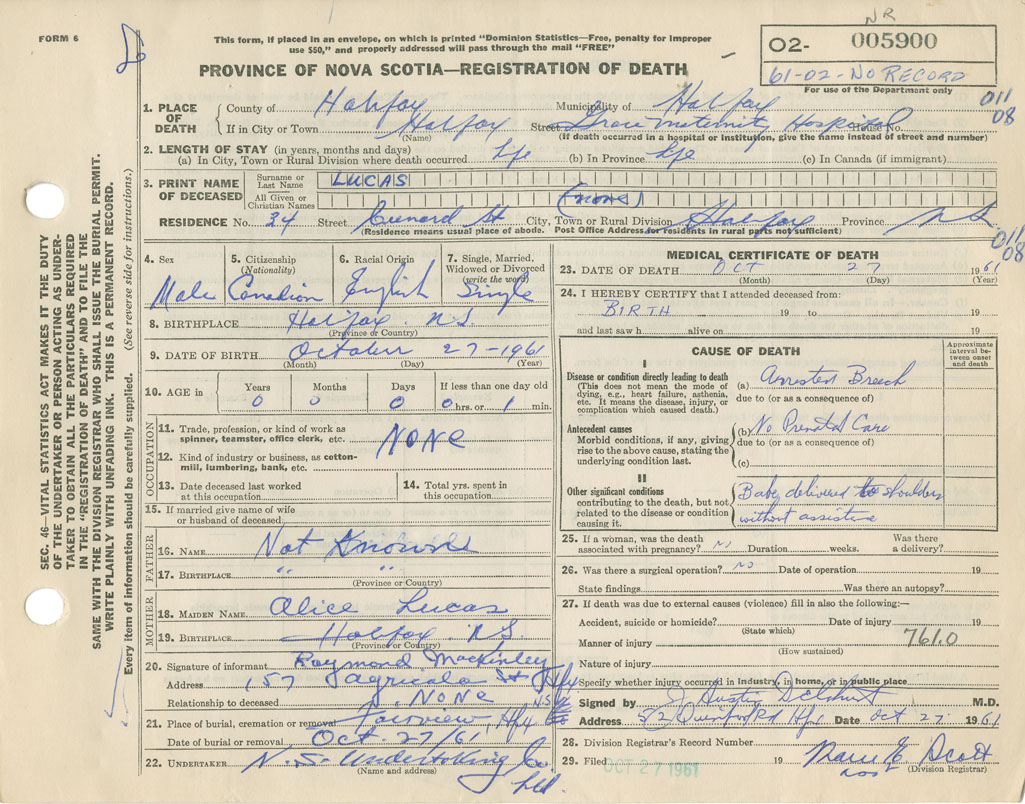 NR
FORM 6
This form, if placed in an envelope, on which is printed "Dominion Statistics—Free, penalty for improper
use $50," and properly addressed will pass through the mail "FREE"
O2- 005900
61-02-NO RECORD
For use of the Department only
PROVINCE OF NOVA SCOTIA—REGISTRATION OF DEATH
011
08
1. PLACE OF DEATH County of Halifax Municipality of Halifax
If in City or Town Halifax Street Grace Maternity Hospital House No.
(Name) (If death occurred in a hospital or institution, give the name instead of street and number)
2. LENGTH OF STAY (in years, months and days)
(a) In City, Town or Rural Division where death occurred life (b) In Province life (c) In Canada (if immigrant)
3. PRINT NAME OF DECEASED Surname or Last Name LUCAS
All Given or Christian Names (none)
RESIDENCE No. 34 Street Cunard St City, Town or Rural Division Halifax Province NS
(Residence means usual place of abode. Post Office Address for residents in rural parts not sufficient)
011
08
4. Sex 5. Citizenship (Nationality) 6. Racial Origin 7. Single, Married, Widowed or Divorced (write the word)
Male Canadian English Single
8. BIRTHPLACE Halifax NS
(Province or Country)
9. DATE OF BIRTH October 27-1961
(Month) (Day) (Year)
10. AGE in Years Months Days If less than one day old
0 0 0 0 hrs. or 1 min.
OCCUPATION
11. Trade, profession, or kind of work as spinner, teamster, office clerk, etc. NONE
12. Kind of industry or business, as cotton-mill, lumbering, bank, etc.
13. Date deceased last worked at this occupation
14. Total yrs. spent in this occupation
15. If married give name of wife or husband of deceased
FATHER
16. NAME Not Known
17. BIRTHPLACE " "
(Province or Country)
MOTHER
18. MAIDEN NAME Alice Lucas
19. BIRTHPLACE Halifax NS
(Province or Country)
20. Signature of informant Raymond MacKinley
Address 157 Agricola St Hfx
N.S.
Relationship to deceased NONE
21. Place of burial, cremation or removal Fairview Hfx
Date of burial or removal Oct-27/61
22. UNDERTAKER N.S. Undertaking Co
(Name and address)
Ltd.
MEDICAL CERTIFICATE OF DEATH
23. DATE OF DEATH OCT 27 1961
(Month) (Day) (Year)
24. I HEREBY CERTIFY that I attended deceased from:
BIRTH 19 to 19
and last saw h alive on 19
CAUSE OF DEATH
Approximate interval between onset and death
I
Disease or condition directly leading to death (a) Arrested Breech
(This does not mean the mode of dying, e.g., heart failure, asthenia, etc. It means the disease, injury, or complication which caused death.)
due to (or as a consequence of)
Antecedent causes (b) No Prenatal Care
Morbid conditions, if any, giving rise to the above cause, stating the underlying condition last.
due to (or as a consequence of)
(c)
II
Other significant conditions contributing to the death, but not related to the disease or condition causing it.
Baby delivered to shoulders
without assistive
25. If a woman, was the death associated with pregnancy? NO Duration weeks. Was there a delivery?
26. Was there a surgical operation? NO Date of operation 19
State findings Was there an autopsy?
27. If death was due to external causes (violence) fill in also the following:—
Accident, suicide or homicide? Date of injury 19
(State which)
Manner of injury 761.0
(How sustained)
Nature of injury
Specify whether injury occurred in industry, in home, or in public place
Signed by J. Austin M.D.
Address 52 Quinpool Rd Hfx Date Oct 27 1961
28. Division Registrar's Record Number
29. Filed OCT 27 1961 19 Marie E. Scott
(Division Registrar)
SEC. 46—VITAL STATISTICS ACT MAKES IT THE DUTY
OF THE UNDERTAKER OR PERSON ACTING AS UNDER-
TAKER TO OBTAIN ALL THE PARTICULARS REQUIRED
IN THE "REGISTRATION OF DEATH" AND TO FILE THE
SAME WITH THE DIVISION REGISTRAR WHO SHALL ISSUE THE BURIAL PERMIT.
WRITE PLAINLY WITH UNFADING INK. THIS IS A PERMANENT RECORD.
Every item of information should be carefully supplied. (See reverse side for instructions.)